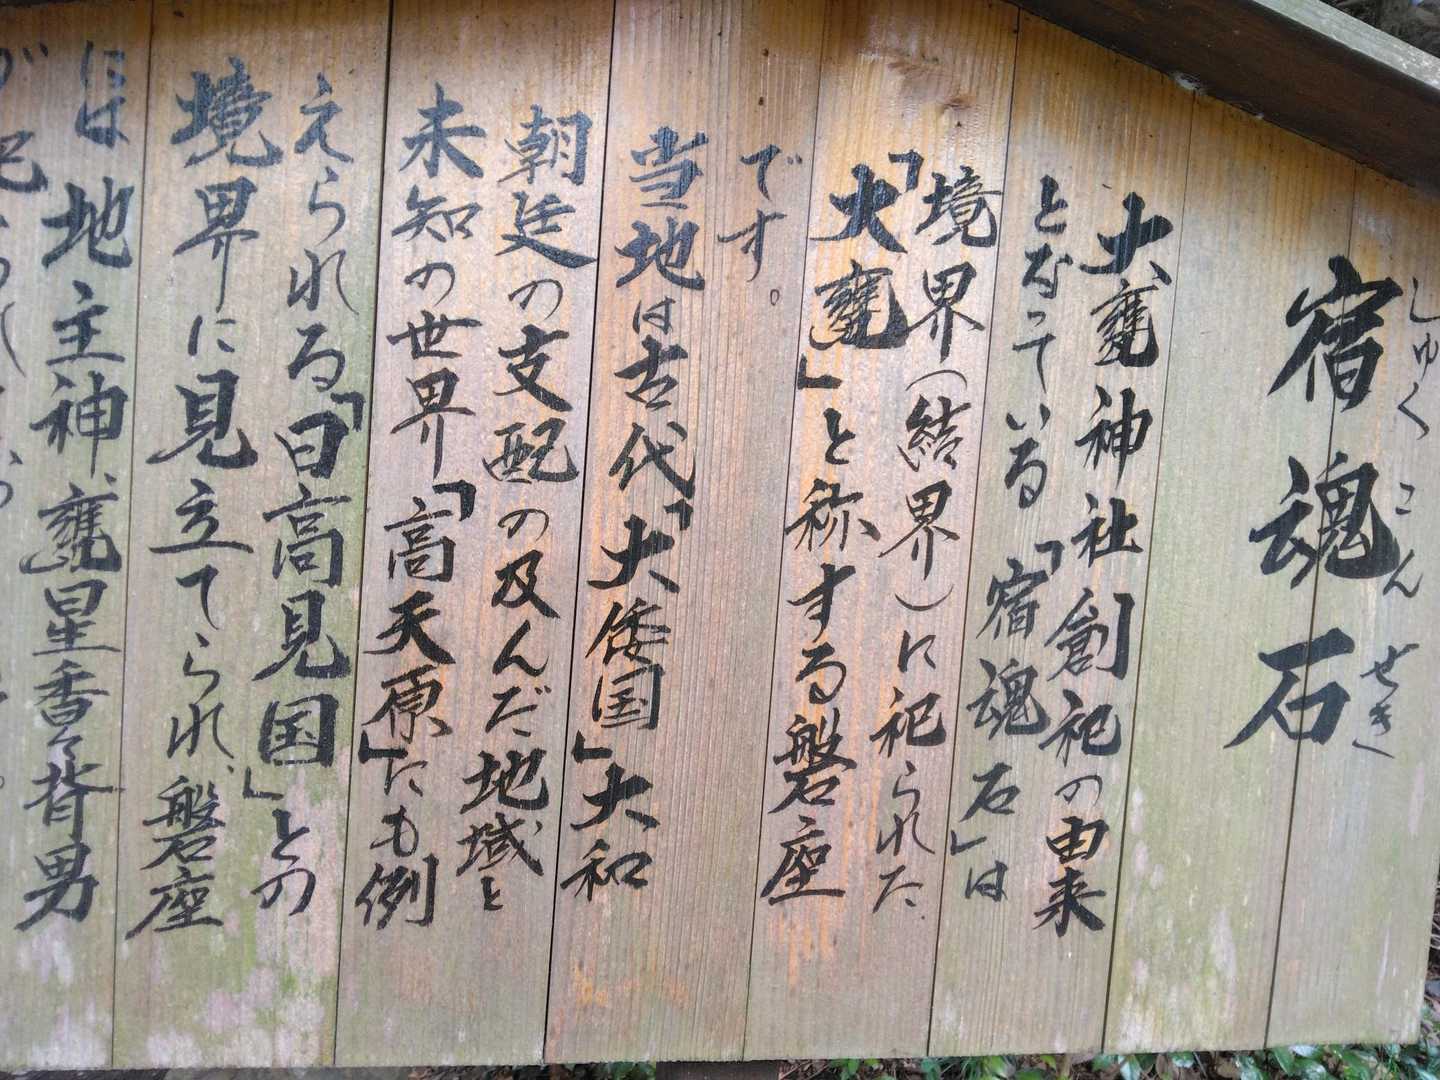 宿魂石
しゅくこんせき
大甕神社創祀の由来
となっている「宿魂石」は
境界(結界)に祀られた
「大甕」と称する磐座
です。
当地は古代「大倭国」大和
朝廷の支配の及んだ地域と
未知の世界「高天原」にも例
えられる「日高見国」との
境界に見立てられ、磐座
には地主神、甕星香々背男
が祀られ